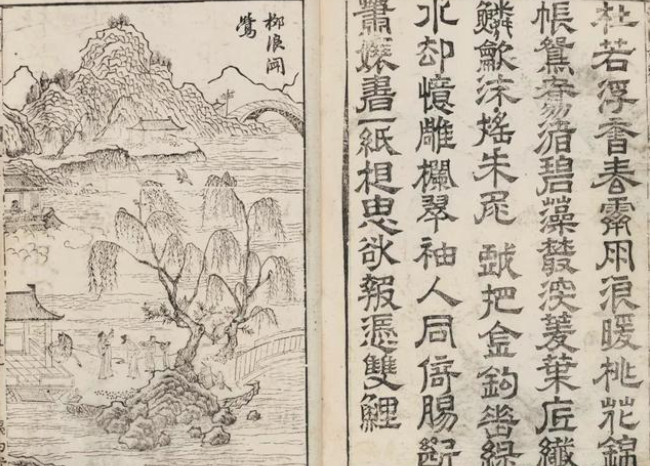 杜若浮香春霽雨浪暖桃花錦
帳鴛碧藻叢深菱葉底纖
鱗沫搖朱尾 戲把金鉤垂綠
水却憶雕欄翠袖人同倚腸斷
蕭孃書一紙相思欲報憑雙鯉
柳浪聞
鶯